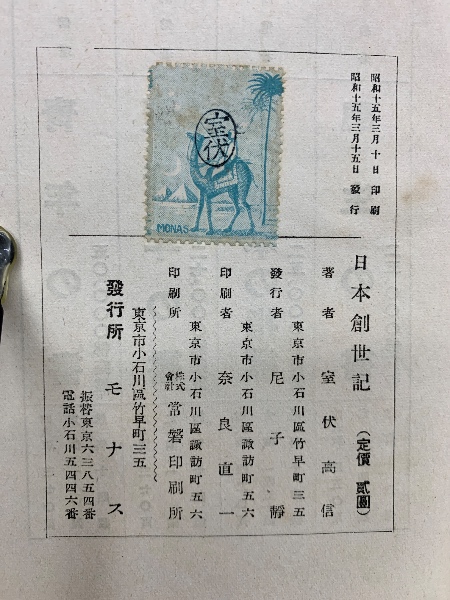 昭和十五年三月十日 印刷
昭和十五年三月十五日 發行
室伏
MONAS
日本創世記 (定價 貳圓)
著者 室伏高信
東京市小石川區竹早町三五
發行者 尼子靜
東京市小石川區諏訪町五六
印刷者 奈良直一
東京市小石川區諏訪町五六
印刷所 株式會社 常磐印刷所
東京市小石川區竹早町三五
發行所 モナス
振替東京六三八五四番
電話小石川五四四六番